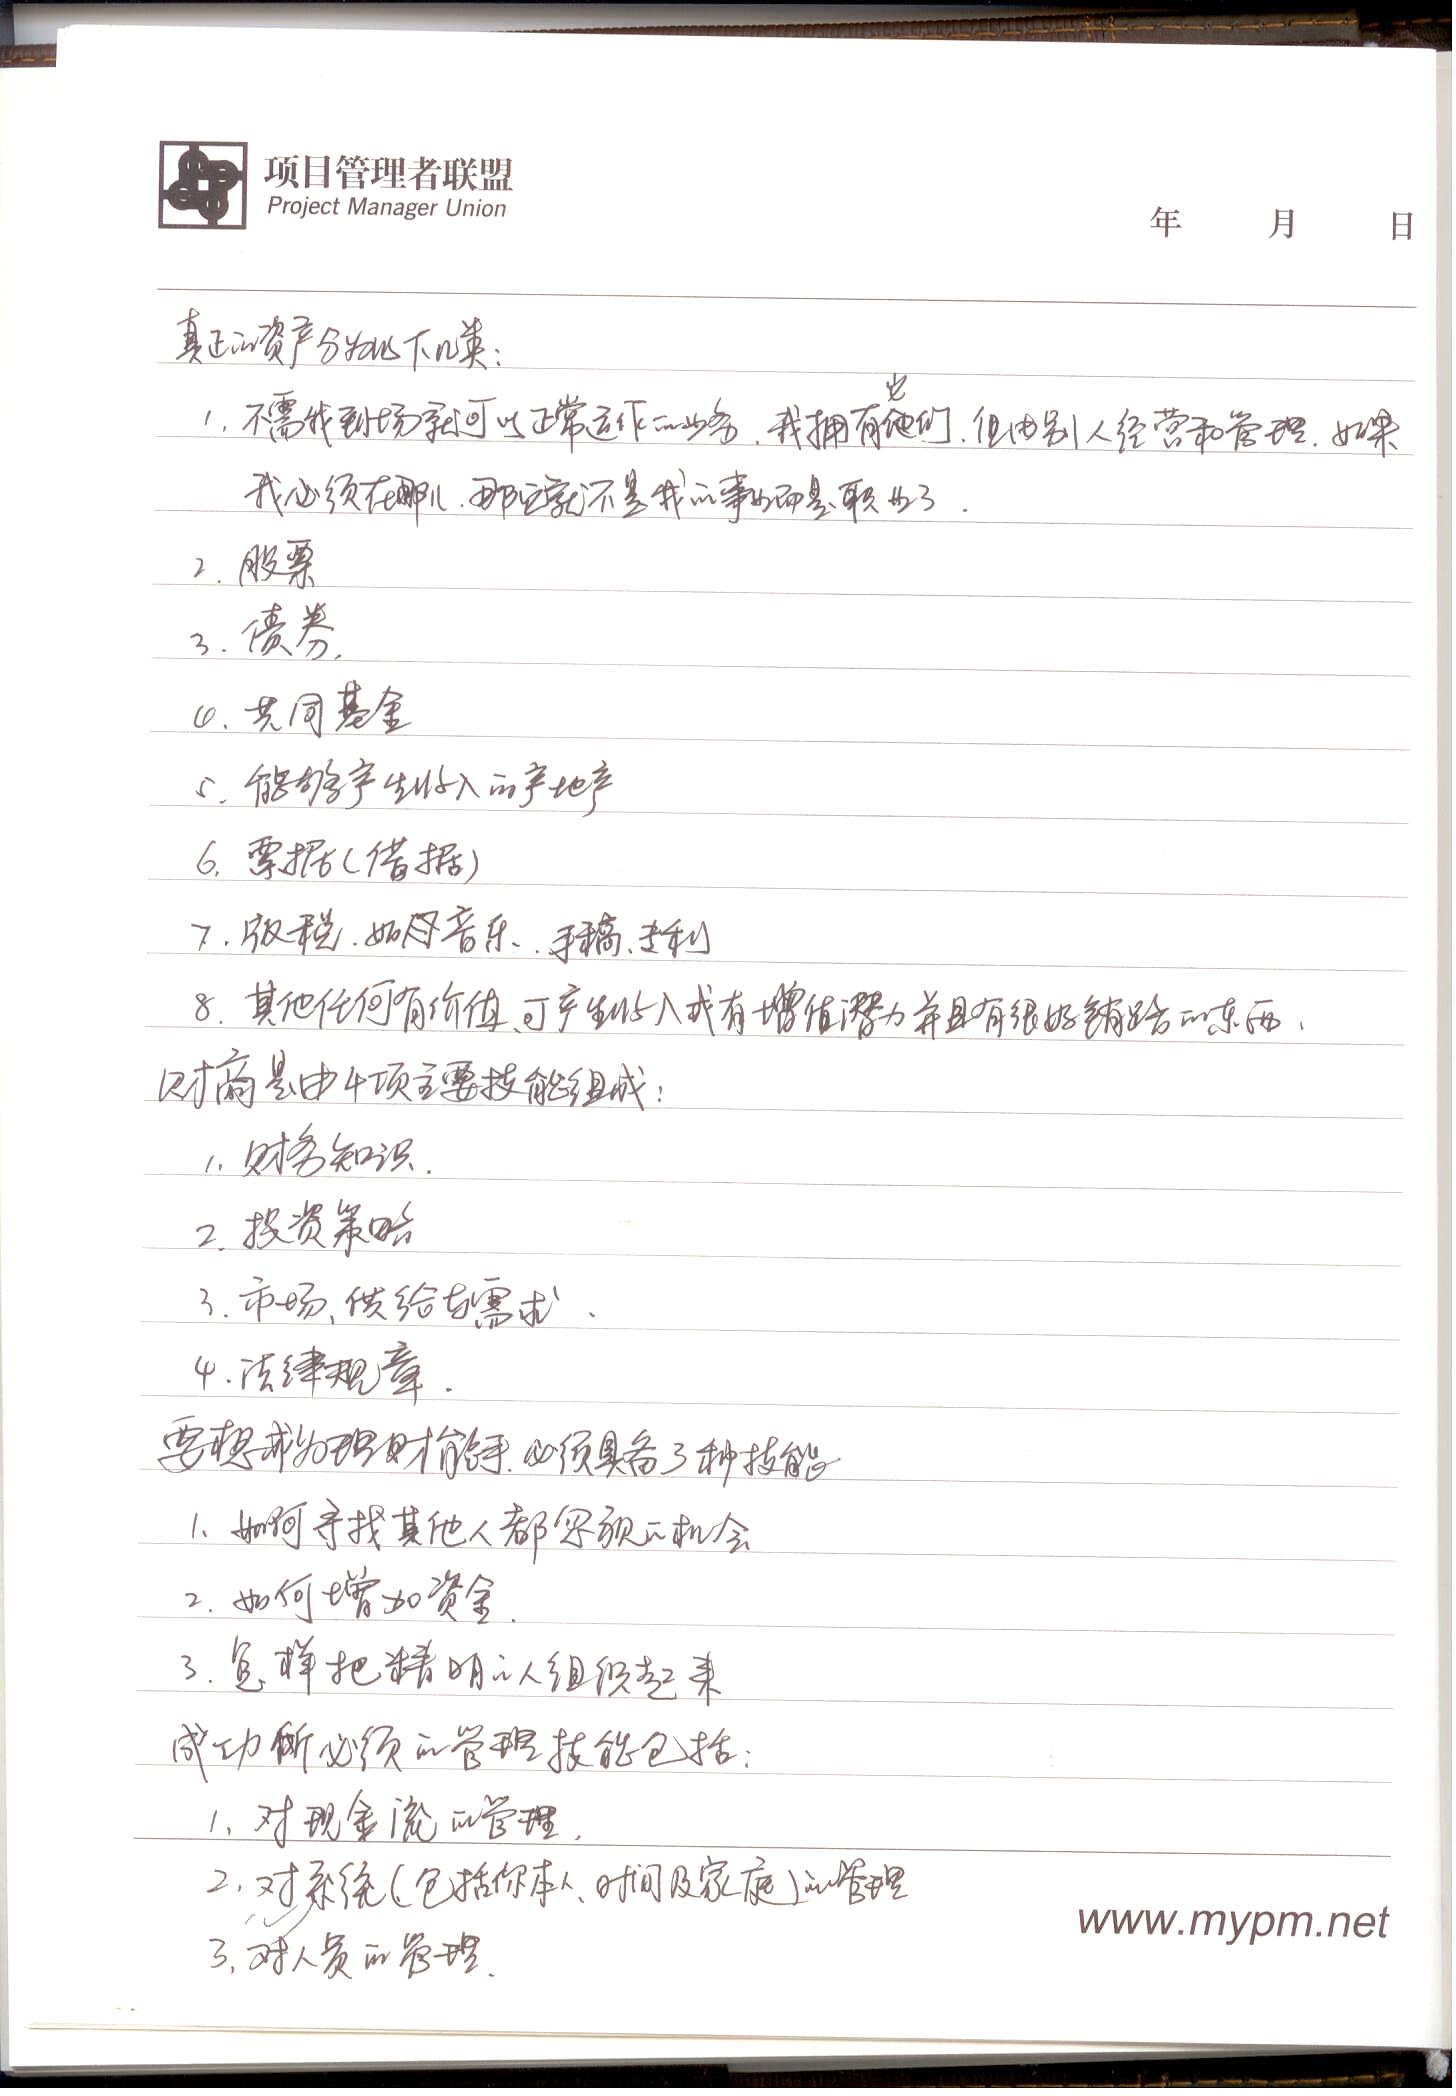 项目管理者联盟
Project Manager Union
年 月 日
真正的资产分为以下几类:
1. 不需我到场就可以正常运作的业务.我拥有它们.但由别人经营和管理.如果
我必须在那儿.那它就不是我的事业而是职业了.
2. 股票
3. 债券.
4. 共同基金
5. 能够产生收入的产地产
6. 票据(借据)
7. 版税.如音乐、手稿、专利
8. 其他任何有价值、可产生收入或有增值潜力并且有很好销路的东西.
财商是由4项主要技能组成:
1. 财务知识.
2. 投资策略
3. 市场、供给与需求.
4. 法律规章.
要想成为理财能手.必须具备3种技能
1. 如何寻找其他人都忽视的机会
2. 如何增加资金.
3. 怎样把精明的人组织起来
成功所必须的管理技能包括:
1. 对现金流的管理.
2. 对系统(包括你本人、时间及家庭)的管理
3. 对人员的管理.
www.mypm.net